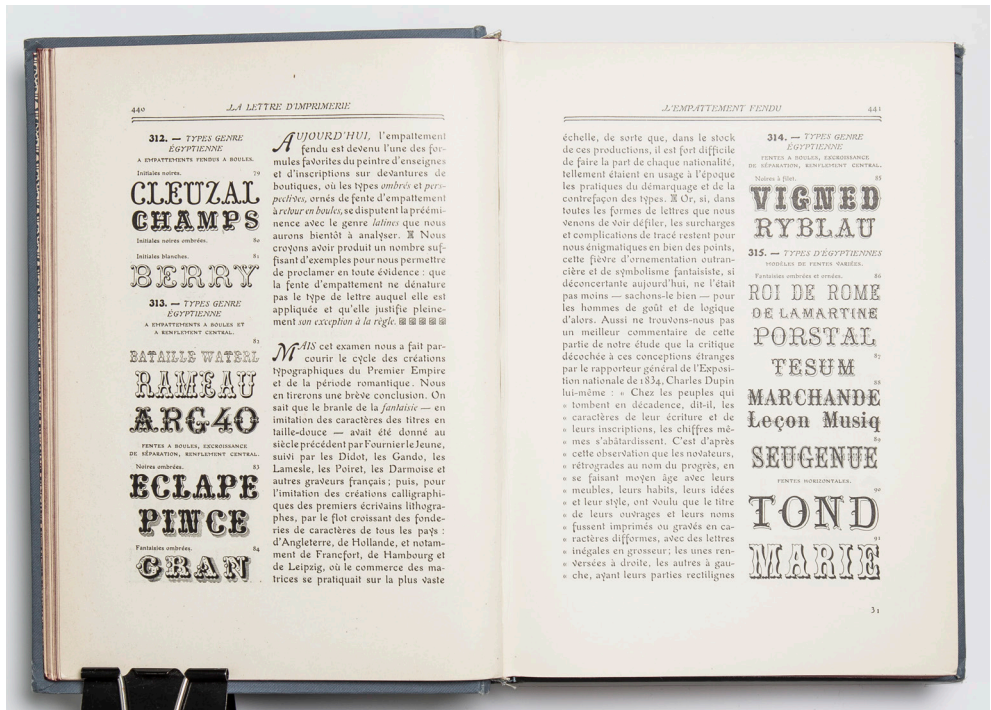 440
LA LETTRE D'IMPRIMERIE
312. — TYPES GENRE
ÉGYPTIENNE
A EMPATTEMENTS FENDUS A BOULES.
Initiales noires. 79
CLEUZAL
CHAMPS
Initiales noires ombrées. 80
Initiales blanches. 81
BERRY
313. — TYPES GENRE
ÉGYPTIENNE
A EMPATTEMENTS A BOULES ET
A RENFLEMENT CENTRAL.
82
BATAILLE WATERL
RAMEAU
ARG40
FENTES A BOULES, EXCROISSANCE
DE SÉPARATION, RENFLEMENT CENTRAL.
Noires ombrées. 83
ECLAPE
PINCE
Fantaisies ombrées. 84
GRAN
AUJOURD'HUI, l'empattement
fendu est devenu l'une des for-
mules favorites du peintre d'enseignes
et d'inscriptions sur devantures de
boutiques, où les types ombrés et pers-
pectives, ornés de fente d'empattement
à retour en boules, se disputent la préémi-
nence avec le genre latines que nous
aurons bientôt à analyser. Nous
croyons avoir produit un nombre suf-
fisant d'exemples pour nous permettre
de proclamer en toute évidence : que
la fente d'empattement ne dénature
pas le type de lettre auquel elle est
appliquée et qu'elle justifie pleine-
ment son exception à la règle.
MAIS cet examen nous a fait par-
courir le cycle des créations
typographiques du Premier Empire
et de la période romantique. Nous
en tirerons une brève conclusion. On
sait que le branle de la fantaisie — en
imitation des caractères des titres en
taille-douce — avait été donné au
siècle précédent par Fournier le Jeune,
suivi par les Didot, les Gando, les
Lamesle, les Poiret, les Darmoise et
autres graveurs français ; puis, pour
l'imitation des créations calligraphi-
ques des premiers écrivains lithogra-
phes, par le flot croissant des fonde-
ries de caractères de tous les pays :
d'Angleterre, de Hollande, et notam-
ment de Francfort, de Hambourg et
de Leipzig, où le commerce des ma-
trices se pratiquait sur la plus vaste
L'EMPATTEMENT FENDU
441
échelle, de sorte que, dans le stock
de ces productions, il est fort difficile
de faire la part de chaque nationalité,
tellement étaient en usage à l'époque
les pratiques du démarquage et de la
contrefaçon des types. Or, si, dans
toutes les formes de lettres que nous
venons de voir défiler, les surcharges
et complications de tracé restent pour
nous énigmatiques en bien des points,
cette fièvre d'ornementation outran-
cière et de symbolisme fantaisiste, si
déconcertante aujourd'hui, ne l'était
pas moins — sachons-le bien — pour
les hommes de goût et de logique
d'alors. Aussi ne trouvons-nous pas
un meilleur commentaire de cette
partie de notre étude que la critique
décochée à ces conceptions étranges
par le rapporteur général de l'Exposi-
tion nationale de 1834, Charles Dupin
lui-même : « Chez les peuples qui
« tombent en décadence, dit-il, les
« caractères de leur écriture et de
« leurs inscriptions, les chiffres mê-
« mes s'abâtardissent. C'est d'après
« cette observation que les novateurs,
« rétrogrades au nom du progrès, en
« se faisant moyen âge avec leurs
« meubles, leurs habits, leurs idées
« et leur style, ont voulu que le titre
« de leurs ouvrages et leurs noms
« fussent imprimés ou gravés en ca-
« ractères difformes, avec des lettres
« inégales en grosseur ; les unes ren-
« versées à droite, les autres à gau-
« che, ayant leurs parties rectilignes
314. — TYPES GENRE
ÉGYPTIENNE
FENTES A BOULES, EXCROISSANCE
DE SÉPARATION, RENFLEMENT CENTRAL.
Noires à filet. 85
VIGNED
RYBLAU
315. — TYPES D'ÉGYPTIENNES
MODÈLES DE FENTES VARIÉES.
Fantaisies ombrées et ornées. 86
ROI DE ROME
DE LAMARTINE
PORSTAL
87
TESUM
88
MARCHANDE
Leçon Musiq
89
SEUGENUE
FENTES HORIZONTALES.
90
TOND
91
MARIE
31